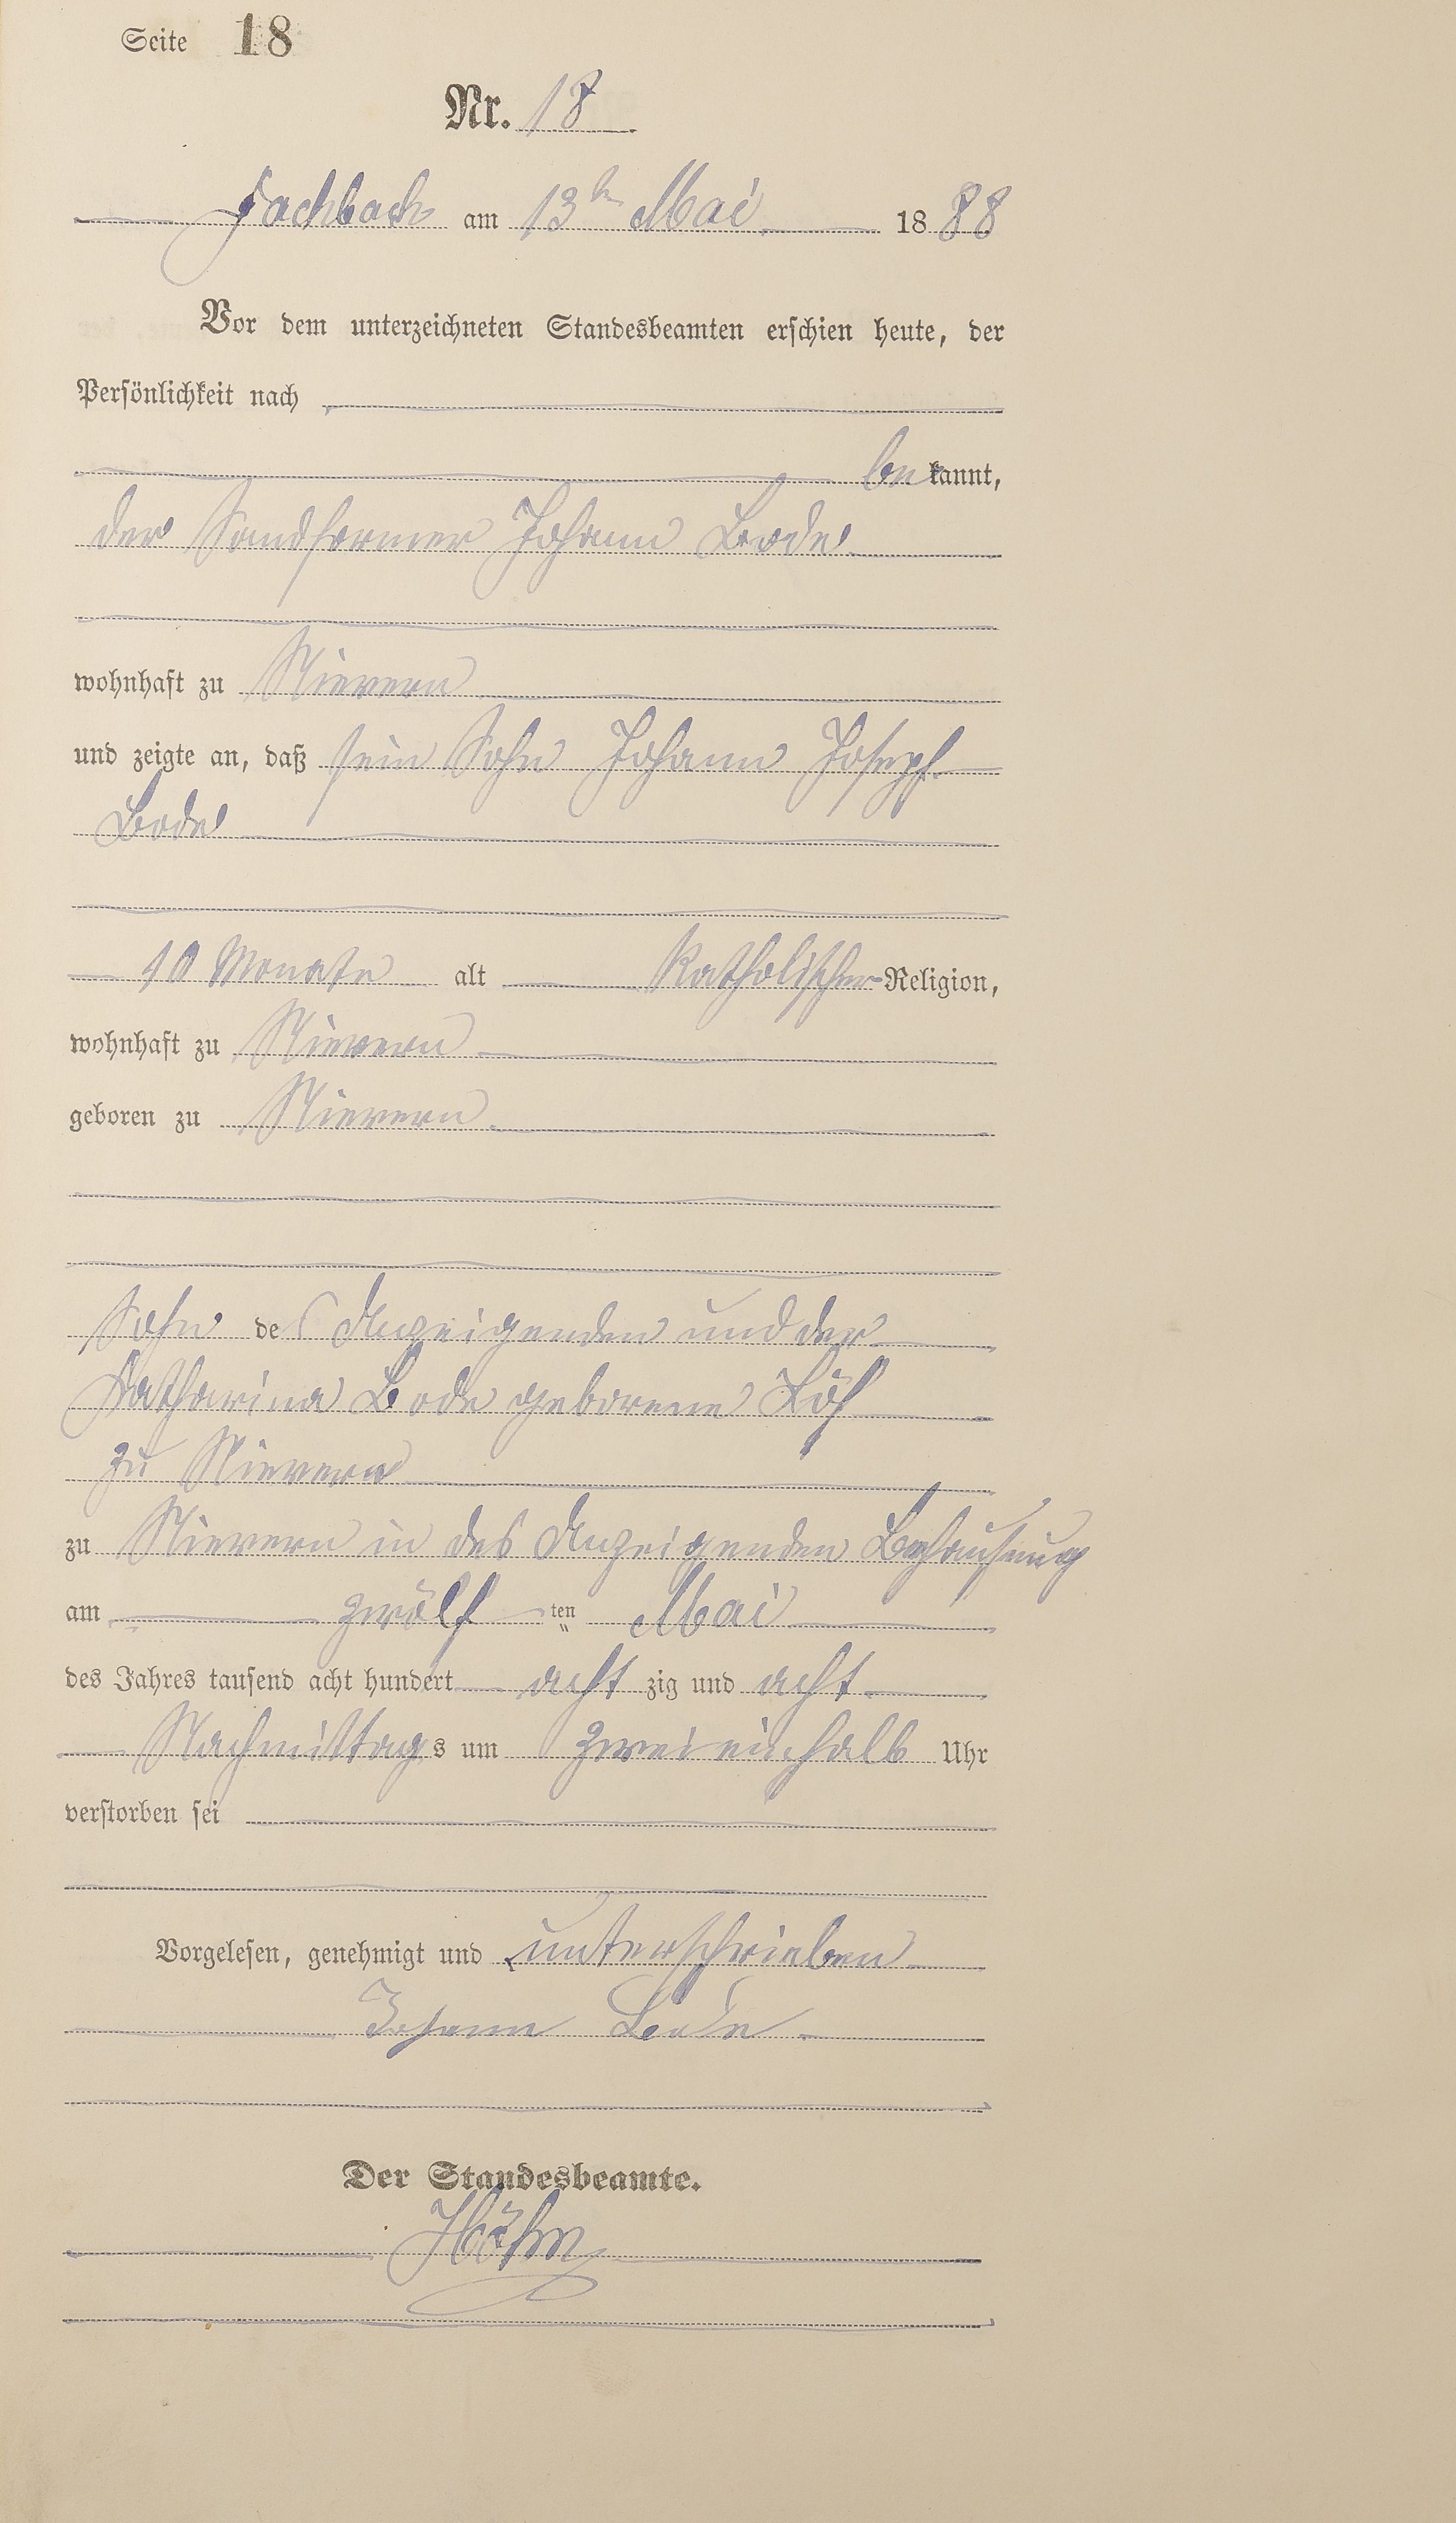 Seite 18
Nr. 18
Fachbach am 13ten Mai 1888
Vor dem unterzeichneten Standesbeamten erschien heute, der
Persönlichkeit nach
bekannt,
der Sandformer Johann Bode
wohnhaft zu Nievern
und zeigte an, daß sein Sohn Johann Joseph
Bode
10 Monate alt Katholischer Religion,
wohnhaft zu Nievern
geboren zu Nievern
Sohn des Anzeigenden und der
Katharina Bode geborene
zu Nievern
zu Nievern in des Anzeigenden Behausung
am zwölf ten Mai
des Jahres tausend acht hundert acht zig und acht
Nachmittags um zweieinhalb Uhr
verstorben sei
Vorgelesen, genehmigt und unterschrieben
Johann Bode
Der Standesbeamte.
Höhn